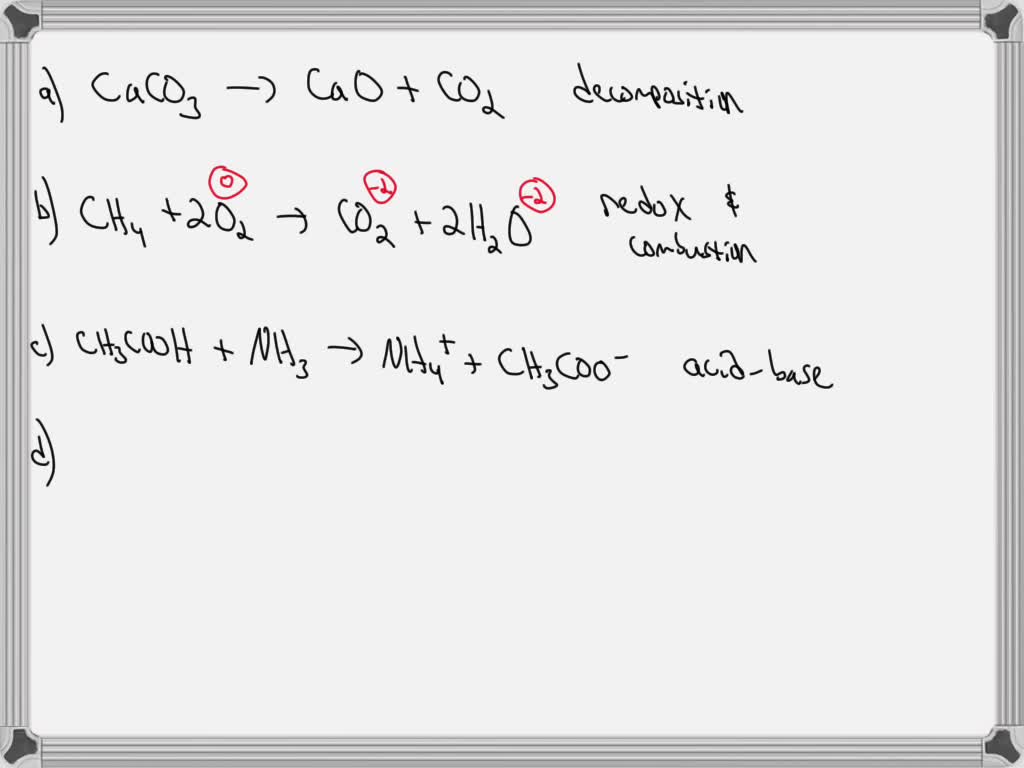 a) CaCO₃ → CaO + CO₂ decomposition
0 -2 -2
b) CH₄ + 2O₂ → CO₂ + 2H₂O redox &
combustion
c) CH₃COOH + NH₃ → NH₄⁺ + CH₃COO⁻ acid-base
d)